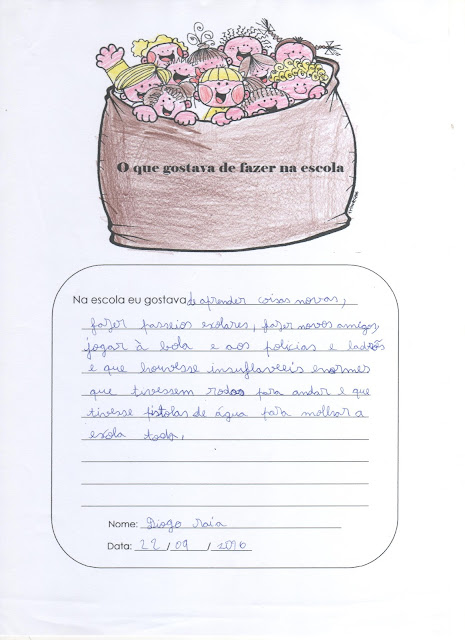 O que gostava de fazer na escola
Na escola eu gostava de aprender coisas novas,
fazer passeios escolares, fazer novos amigos,
jogar à bola e aos polícias e ladrões
e que houvesse insuflaveeis enormes
que tivessem rodas para andar e que
tivesse pistolas de água para molhar a
escola toda.
Nome: Diogo Raia
Data: 22 / 09 / 2016